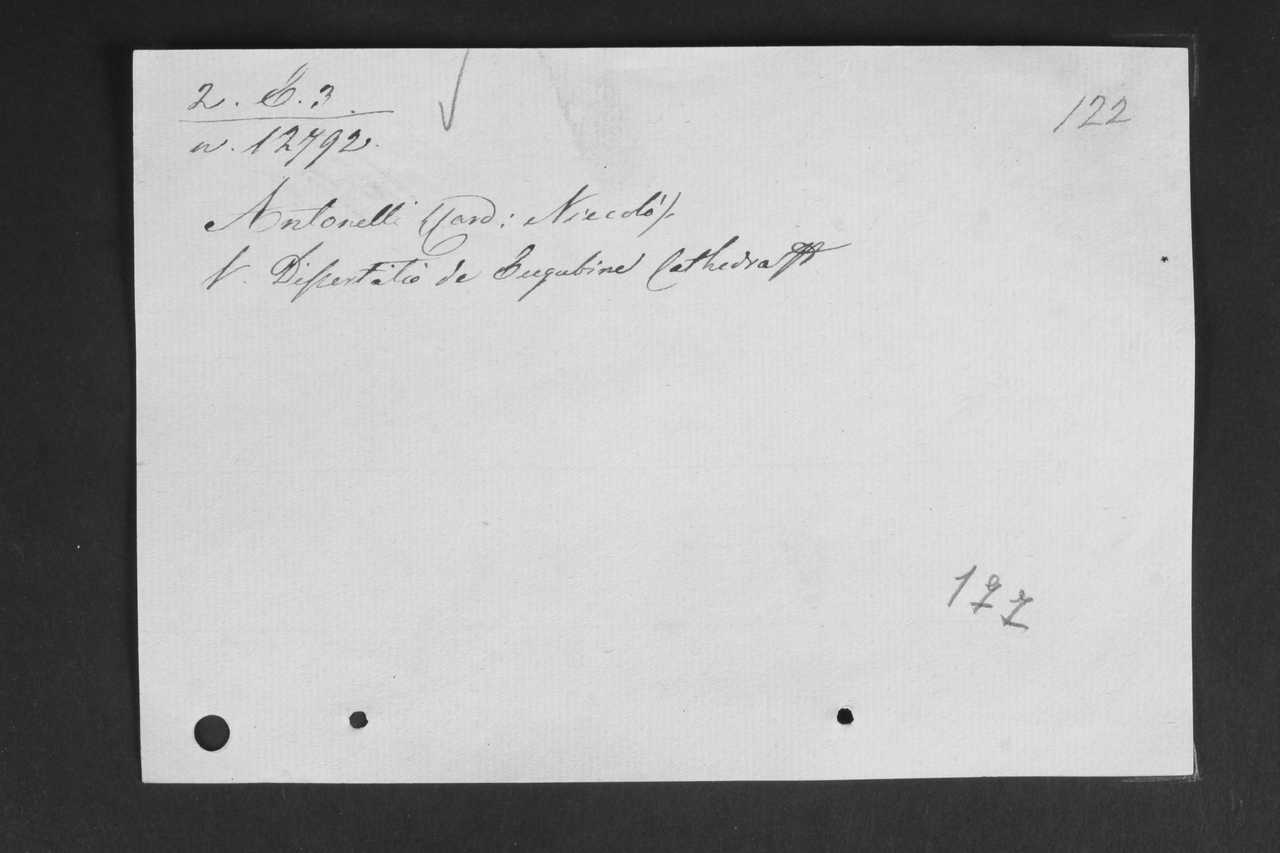 2. E. 3.
122
n. 12792.
Antonelli (Card: Niccolò)
V. Dissertatio de Eugubine Cathedra
177